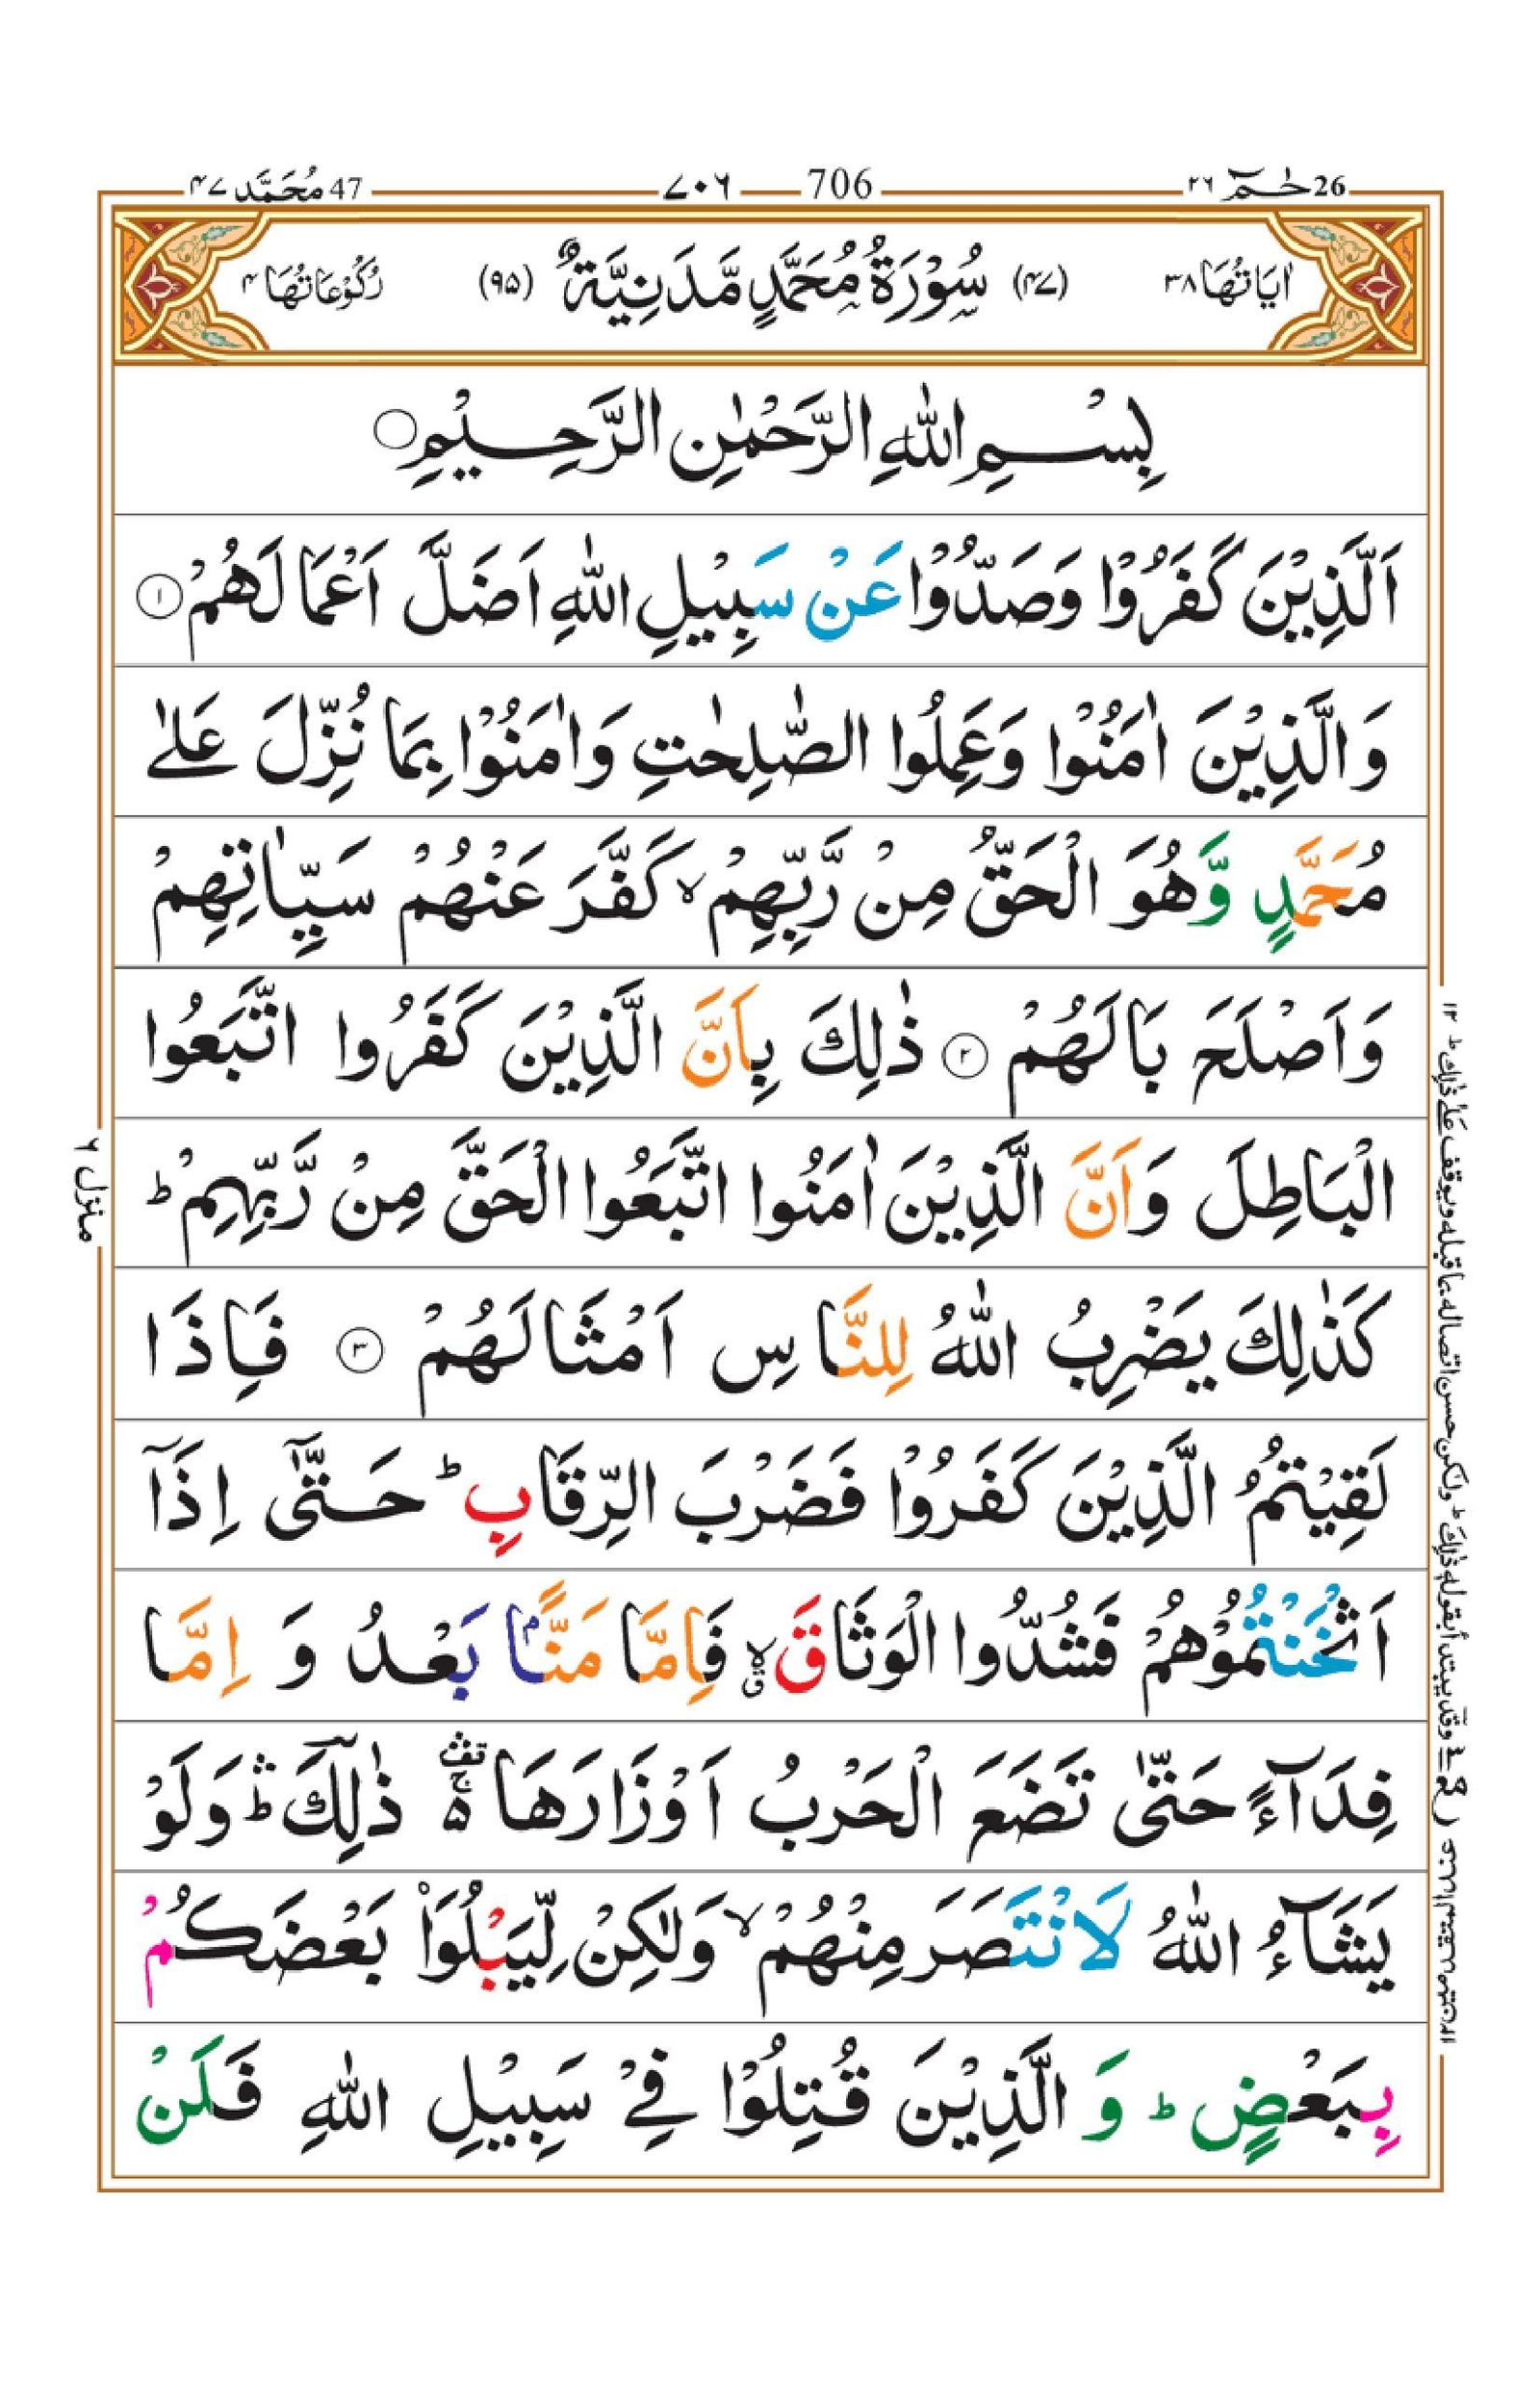 26 حٰمٓ ۲۶
706 ۷۰۶
47 مُحَمَّد ۴۷
اٰیَاتُهَا ۳۸
(۴۷) سُوْرَةُ مُحَمَّدٍ مَّدَنِيَّةٌ (۹۵)
رُكُوْعَاتُهَا ۴
بِسْمِ اللّٰهِ الرَّحْمٰنِ الرَّحِيْمِ ○
اَلَّذِيْنَ كَفَرُوْا وَصَدُّوْا عَنْ سَبِيْلِ اللّٰهِ اَضَلَّ اَعْمَالَهُمْ ۱
وَالَّذِيْنَ اٰمَنُوْا وَعَمِلُوا الصّٰلِحٰتِ وَاٰمَنُوْا بِمَا نُزِّلَ عَلٰى
مُحَمَّدٍ وَّهُوَ الْحَقُّ مِنْ رَّبِّهِمْ ۙ كَفَّرَ عَنْهُمْ سَيِّاٰتِهِمْ
وَاَصْلَحَ بَالَهُمْ ۲ ذٰلِكَ بِاَنَّ الَّذِيْنَ كَفَرُوا اتَّبَعُوا
الْبَاطِلَ وَاَنَّ الَّذِيْنَ اٰمَنُوا اتَّبَعُوا الْحَقَّ مِنْ رَّبِّهِمْ ؕ
كَذٰلِكَ يَضْرِبُ اللّٰهُ لِلنَّاسِ اَمْثَالَهُمْ ۳ فَاِذَا
لَقِيْتُمُ الَّذِيْنَ كَفَرُوْا فَضَرْبَ الرِّقَابِ ؕ حَتّٰٓى اِذَاۤ
اَثْخَنْتُمُوْهُمْ فَشُدُّوا الْوَثَاقَ ۙ فَاِمَّا مَنًّۢا بَعْدُ وَ اِمَّا
فِدَآءً حَتّٰى تَضَعَ الْحَرْبُ اَوْزَارَهَا ۛۚ ذٰلِكَ ۛؕ وَلَوْ
يَشَآءُ اللّٰهُ لَانْتَصَرَ مِنْهُمْ ۙ وَلٰكِنْ لِّيَبْلُوَا۟ بَعْضَكُمْ
بِبَعْضٍ ؕ وَ الَّذِيْنَ قُتِلُوْا فِيْ سَبِيْلِ اللّٰهِ فَلَنْ
منزل ۶